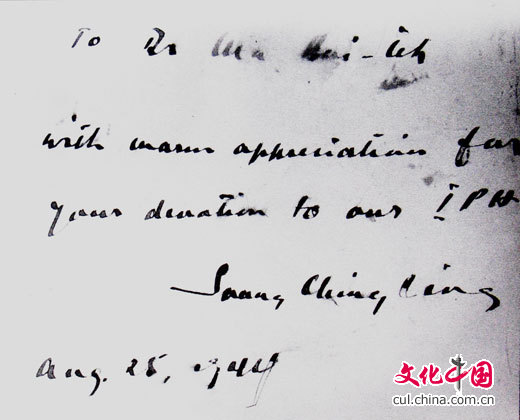 To Dr Ma Hai-teh
with warm appreciation for
your devotion to our IPH
Soong Ching Ling
Aug. 25, 1944
文化中国
cul.china.com.cn